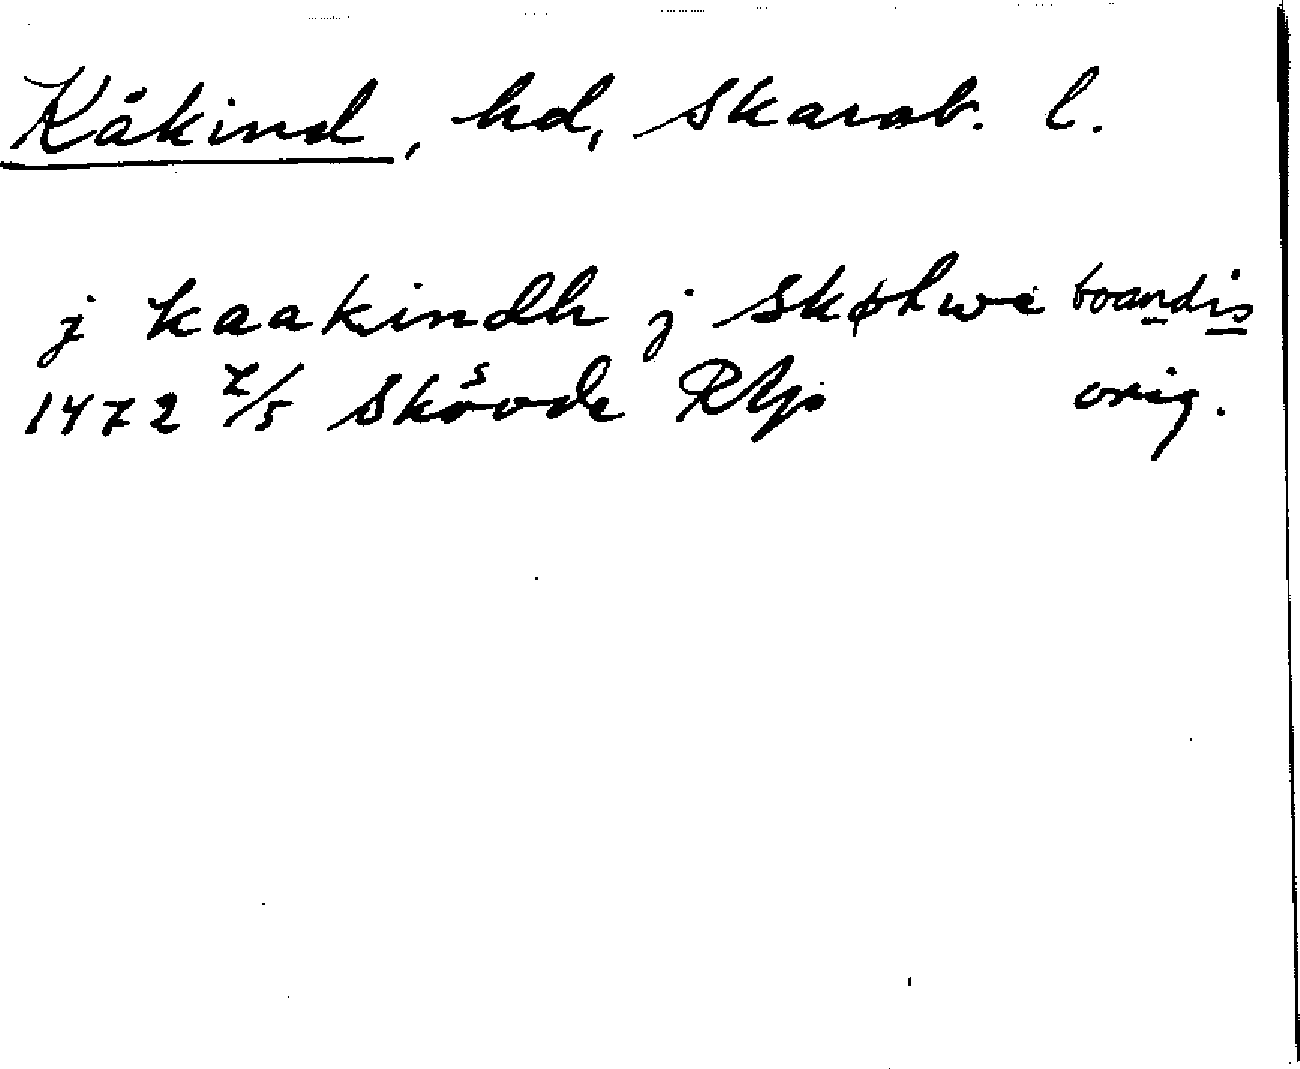 Kåkind, hd, Skarab. l.
j kaakindh j skøhwe boandis
1472 7/5 Skövde s Rlp orig.